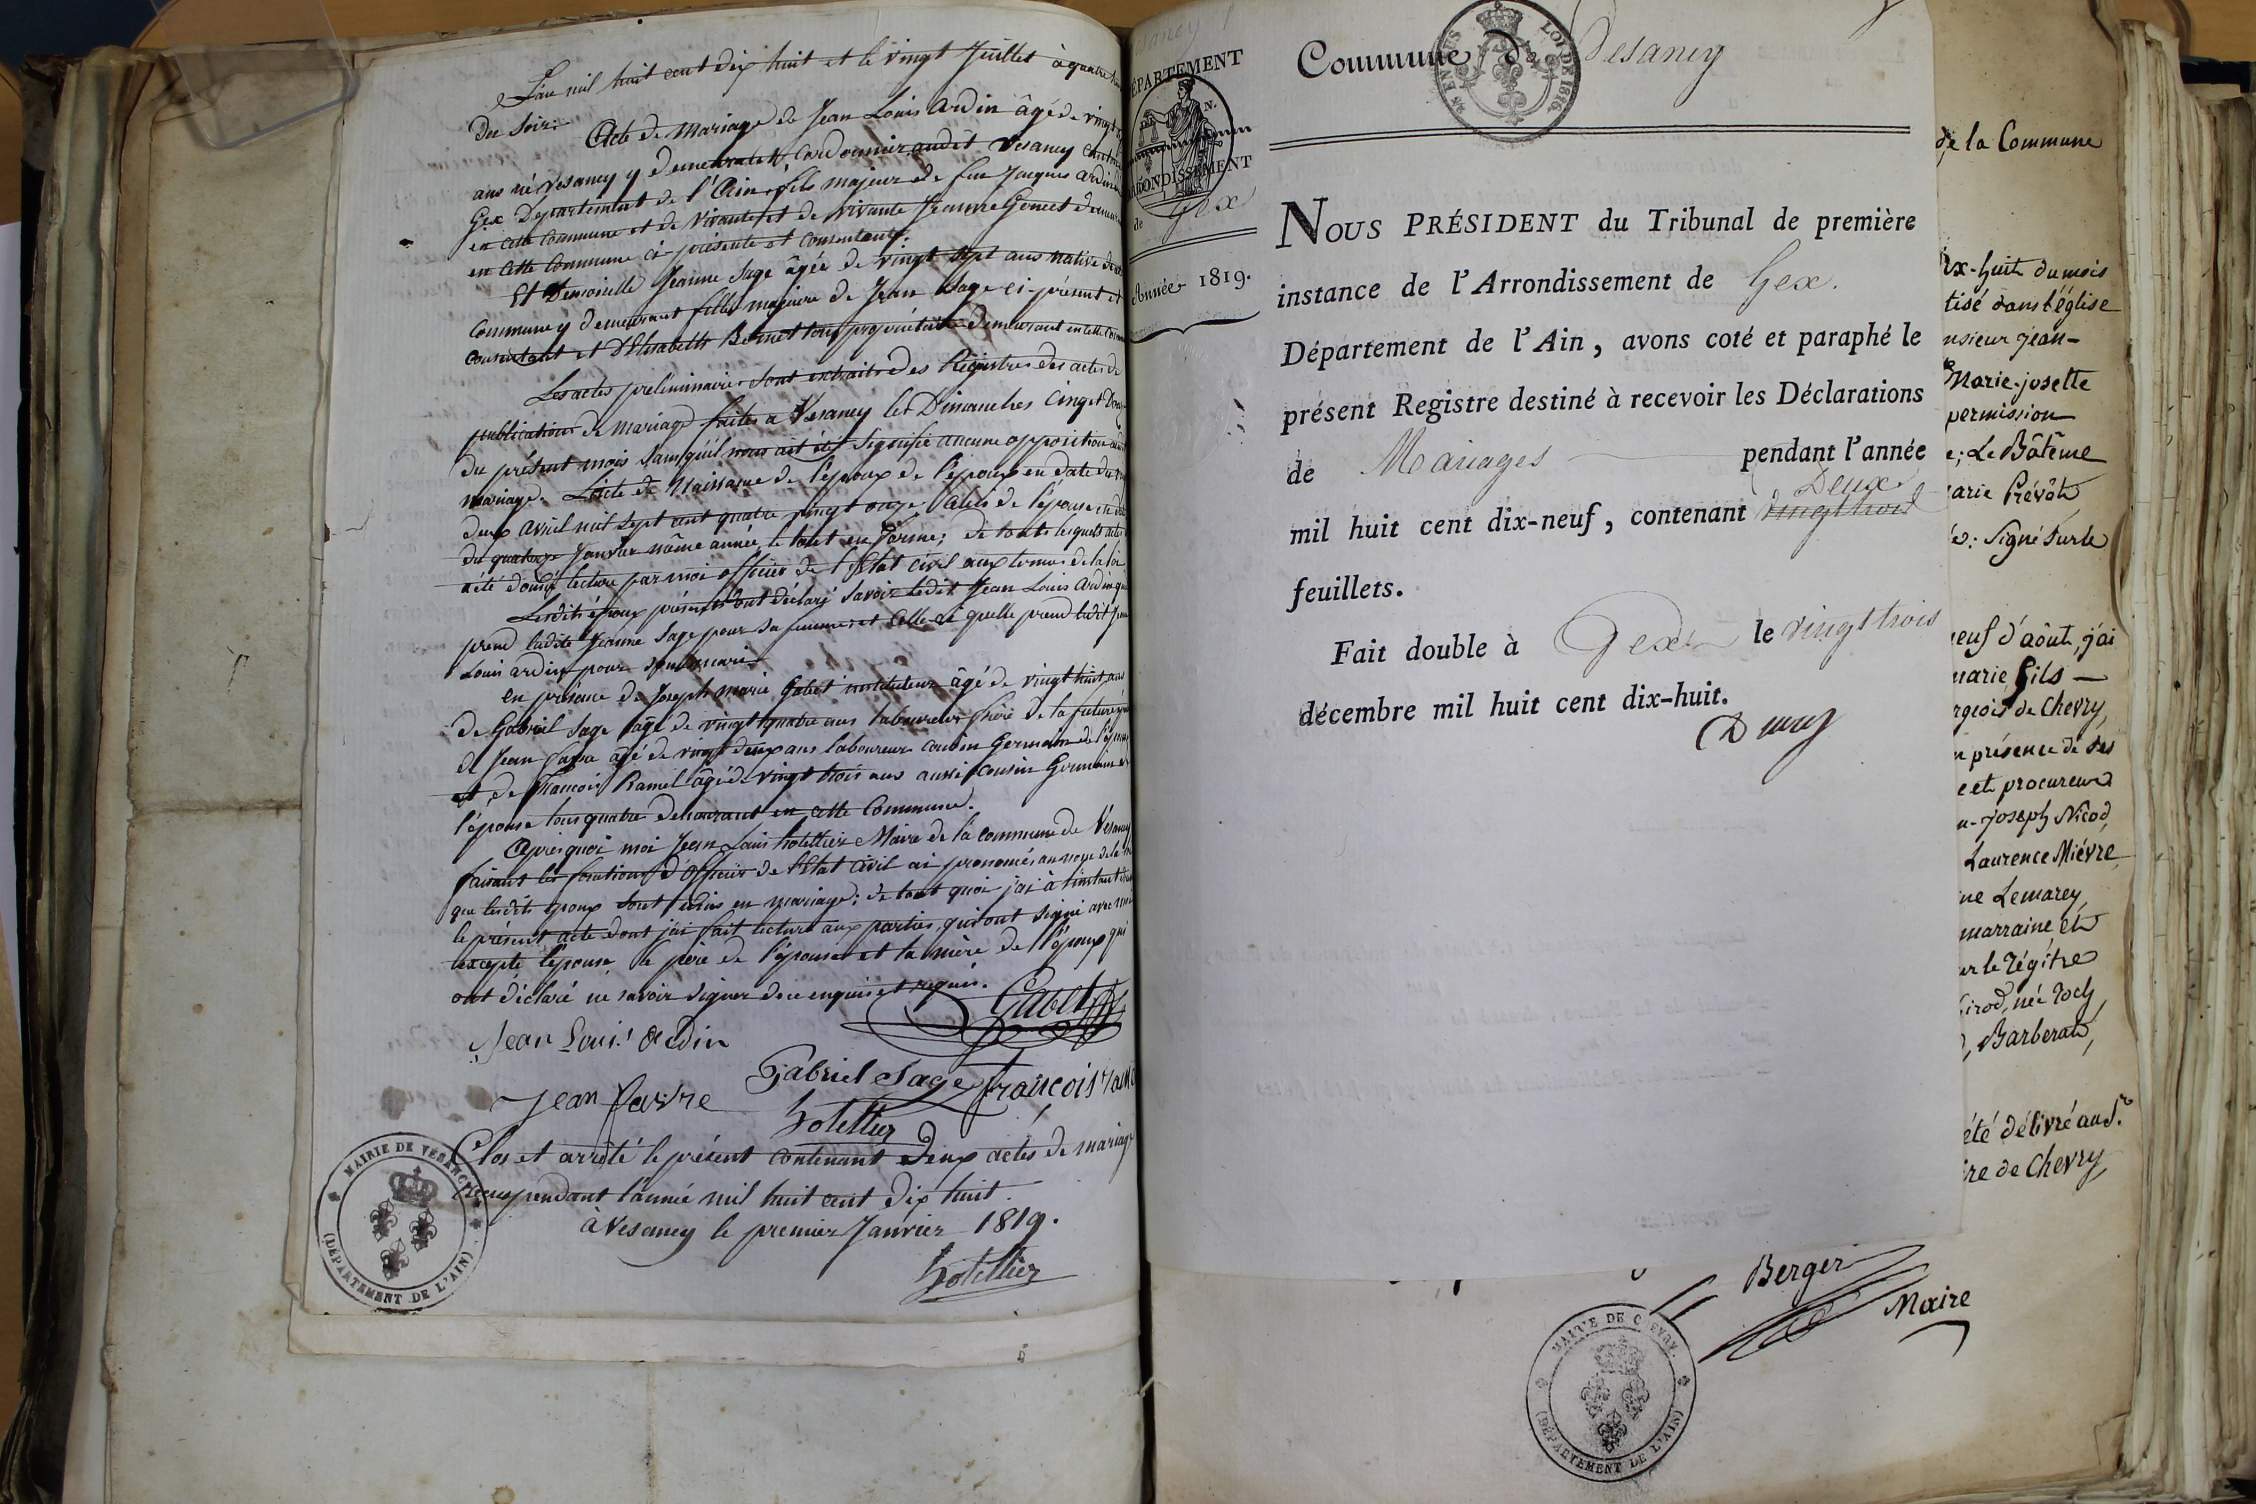 L'an mil huit cent dix huit et le vingt Juillet à quatre
du soir.
Acte de Mariage de Jean Louis Ardin âgé de vingt
ans né Vesancy y demeurant Cordonnier audit Vesancy
Gex Département de l'Ain, fils majeur de feu Jacques Ardin
en cette Commune et de vivante et de vivante Jeanne
en cette Commune ci présente et consentante.
Et Demoiselle Jeanne Sage âgée de vingt sept ans native de
Commune y demeurant fille majeure de Jean Sage ci-présent et
consentant et d'Elisabeth tous propriétaire demeurant en cette
Les actes préliminaires sont extraits des Régistres des actes de
publications de mariage faites a Vesancy les Dimanches cinq et
du présent mois sans qu'il nous ait été signifié aucune opposition
mariage. L'acte de Naissance de l'époux de l'époux en date du
deux avril mil sept cent quatre vingt onze celui de l'épouse en
du quatorze Janvier même année, le tout en forme; de tous lesquels actes
a été donné lecture par moi officier de l'Etat civil aux termes de la loi
Lesdits époux présents ont déclaré savoir ledit Jean Louis Ardin
prend ladite Jeanne Sage pour sa femme et celle ci quelle prend ledit
Louis ardin pour son mari.
en présence de Joseph Marie Gabet instituteur âgé de vingt huit ans
de Gabriel Sage âgé de vingt quatre ans laboureur frère de la future
de Jean âgé de vingt deux ans laboureur cousin Germain de
et de François Ramel âgé de vingt trois ans aussi cousin Germain
l'épouse tous quatre demeurant en cette Commune.
Après quoi moi Jean Louis hotellier Maire de la commune de Vesancy
faisant les fonctions d'Officier de l'Etat civil ai prononcé au nom de la
que lesdits époux sont unis en mariage; de tout quoi j'ai à l'instant
le présent acte dont j'ai fait lecture aux parties, qui ont signé avec
excepté l'épouse, le père de l'épouse et la mère de l'époux qui
ont déclaré ne savoir signer de ce enquis et requis.
Gabet
Jean Louis Ardin
Gabriel Sage François
Jean favre
hotellier
Clos et arrêté le présent contenant deux actes de mariage
pendant l'année mil huit cent dix huit.
à Vesancy le premier Janvier 1819.
hotellier
MAIRIE DE VESANCY
(DÉPARTEMENT DE L'AIN)
DÉPARTEMENT
DE L'AIN.
ARRONDISSEMENT
de Gex
Année 1819.
Commune de Vesancy
LOI DE 1816.
NOUS PRÉSIDENT du Tribunal de première
instance de l'Arrondissement de Gex.
Département de l'Ain, avons coté et paraphé le
présent Registre destiné à recevoir les Déclarations
de Mariages pendant l'année
Deux
mil huit cent dix-neuf, contenant vingt trois
feuillets.
Fait double à Gex le vingt trois
décembre mil huit cent dix-huit.
de la Commune
ix-huit du mois
tisé dans l'église
nsieur jean-
Marie-josette
permission
e; Le Bâtême
arie Prévôt
és: Signé sur le
neuf d'aôut, j'ai
marie fils
rgeois de Chevry,
n présence de ses
e et procureur
n-joseph Nicod,
Laurence Miévre
ne Lemarey,
marraine et
er le régitre
irod, née roch
Barberat,
été délivré au S.r
ire de Chevry,
Berger
Maire
MAIRIE DE CHEVRY.
(DÉPARTEMENT DE L'AIN)